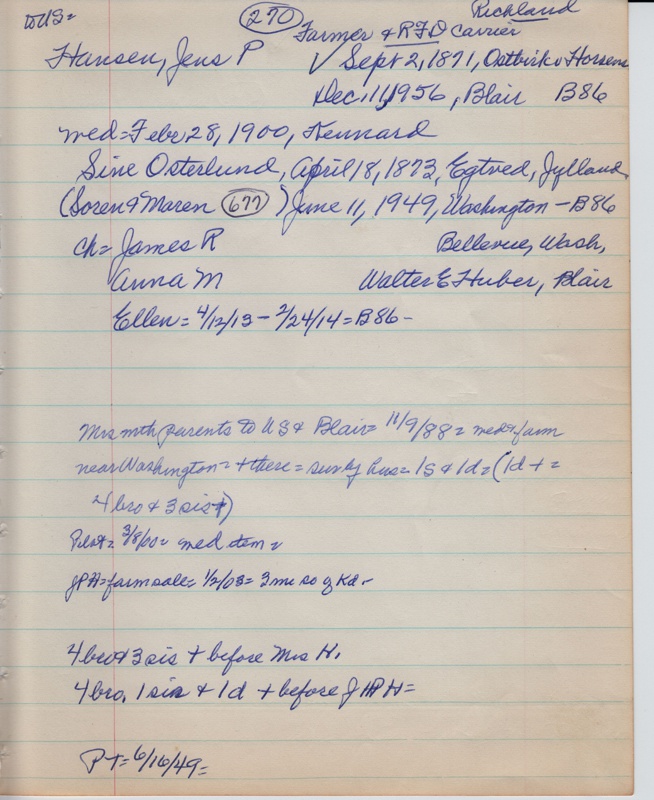 toUS=
270
Richland
Farmer & RFD Carrier
Hansen, Jens P ✓ Sept 2, 1871, Ostbirk v Horsens
Dec. 11, 1956, Blair B86
med = Febr 28, 1900, Kennard
Sine Osterlund, April 18, 1873, Egtved, Jylland
(Soren & Maren 677) June 11, 1949, Washington - B86
ch = James R Bellevue, Wash,
Anna M Walter E Huber, Blair
Ellen = 4/12/13 - 2/24/14 = B86 -
Mrs with parents to US & Blair = 11/9/88 = med & farm
near Washington = + there = surv by hus = 1s & 1d = (1d + =
4 bro & 3 sis +)
Pilot = 3/8/00 = med item =
JPH = farm sale = 1/2/03 = 3 mi so of Kd -
4 bro & 3 sis + before Mrs H.
4 bro, 1 sis + 1d + before JPH =
PT = 6/16/49 =